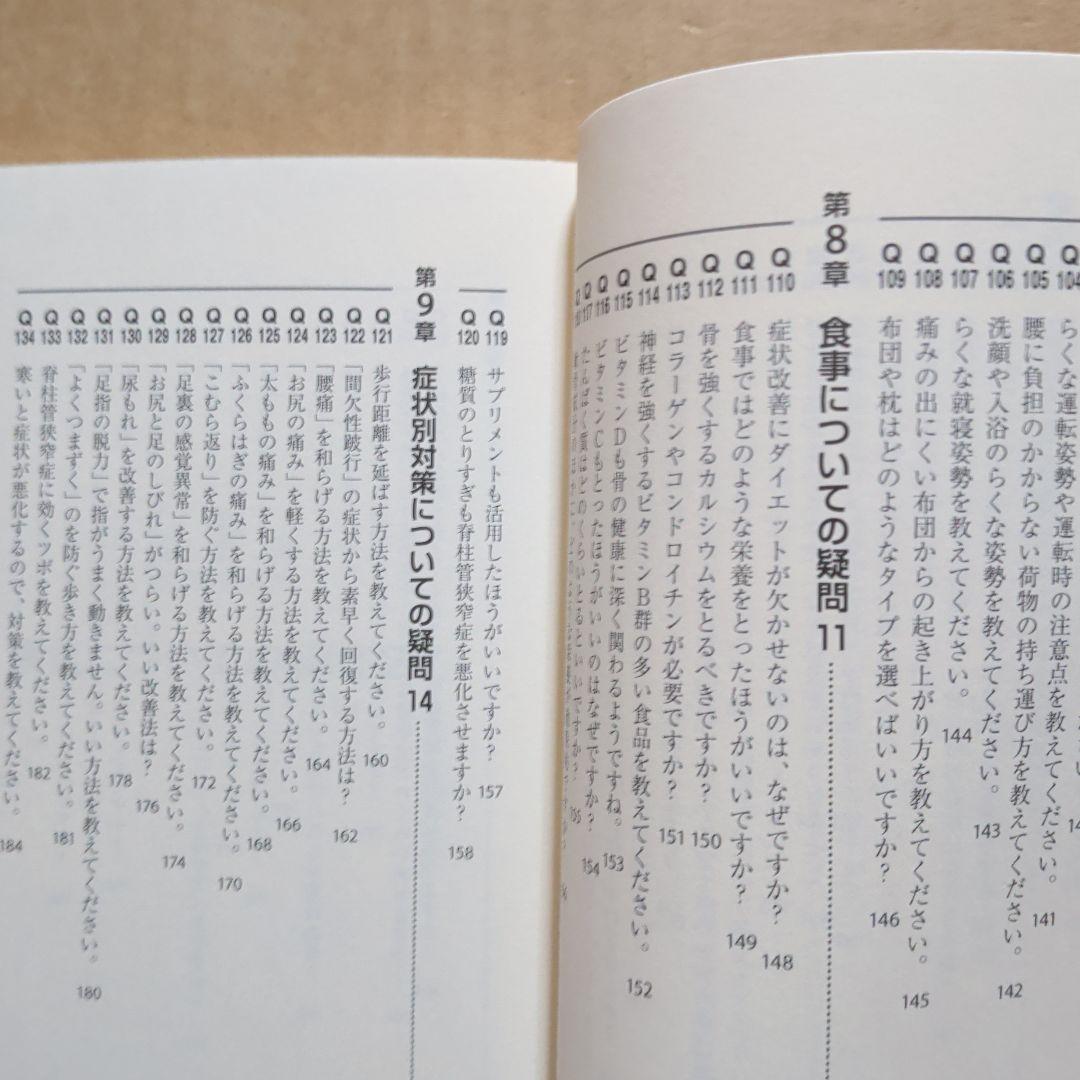 Q104 らくな運転姿勢や運転時の注意点を教えてください。
Q105 腰に負担のかからない荷物の持ち運び方を教えてください。 141
Q106 洗顔や入浴のらくな姿勢を教えてください。 142
Q107 らくな就寝姿勢を教えてください。 143
Q108 痛みの出にくい布団からの起き上がり方を教えてください。 144
Q109 布団や枕はどのようなタイプを選べばいいですか? 145
146
第8章 食事についての疑問11
Q110 症状改善にダイエットが欠かせないのは、なぜですか? 148
Q111 食事ではどのような栄養をとったほうがいいですか? 149
Q112 骨を強くするカルシウムをとるべきですか? 150
Q113 コラーゲンやコンドロイチンが必要ですか? 151
Q114 神経を強くするビタミンB群の多い食品を教えてください。 152
Q115 ビタミンDも骨の健康に深く関わるようですね。 153
Q116 ビタミンCもとったほうがいいのはなぜですか? 154
Q117 たんぱく質はどのくらいとるといいですか? 155
Q119 サプリメントも活用したほうがいいですか? 157
Q120 糖質のとりすぎも脊柱管狭窄症を悪化させますか? 158
第9章 症状別対策についての疑問14
Q121 歩行距離を延ばす方法を教えてください。 160
Q122 「間欠性跛行」の症状から素早く回復する方法は? 162
Q123 「腰痛」を和らげる方法を教えてください。 164
Q124 「お尻の痛み」を軽くする方法を教えてください。 166
Q125 「太ももの痛み」を和らげる方法を教えてください。 168
Q126 「ふくらはぎの痛み」を和らげる方法を教えてください。 170
Q127 「こむら返り」を防ぐ方法を教えてください。 172
Q128 「足裏の感覚異常」を和らげる方法を教えてください。 174
Q129 「お尻と足のしびれ」がつらい。いい改善法は? 176
Q130 「尿もれ」を改善する方法を教えてください。 178
Q131 「足指の脱力」で指がうまく動きません。いい方法を教えてください。 180
Q132 「よくつまずく」のを防ぐ歩き方を教えてください。 181
Q133 脊柱管狭窄症に効くツボを教えてください。 182
Q134 寒いと症状が悪化するので、対策を教えてください。 184